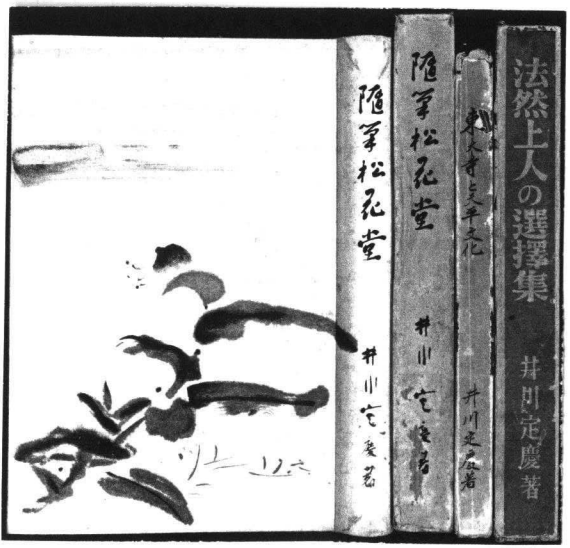 随筆松花堂
井川定慶著
随筆松花堂
井川定慶著
東大寺と天平文化
井川定慶著
法然上人の選擇集
井川定慶著